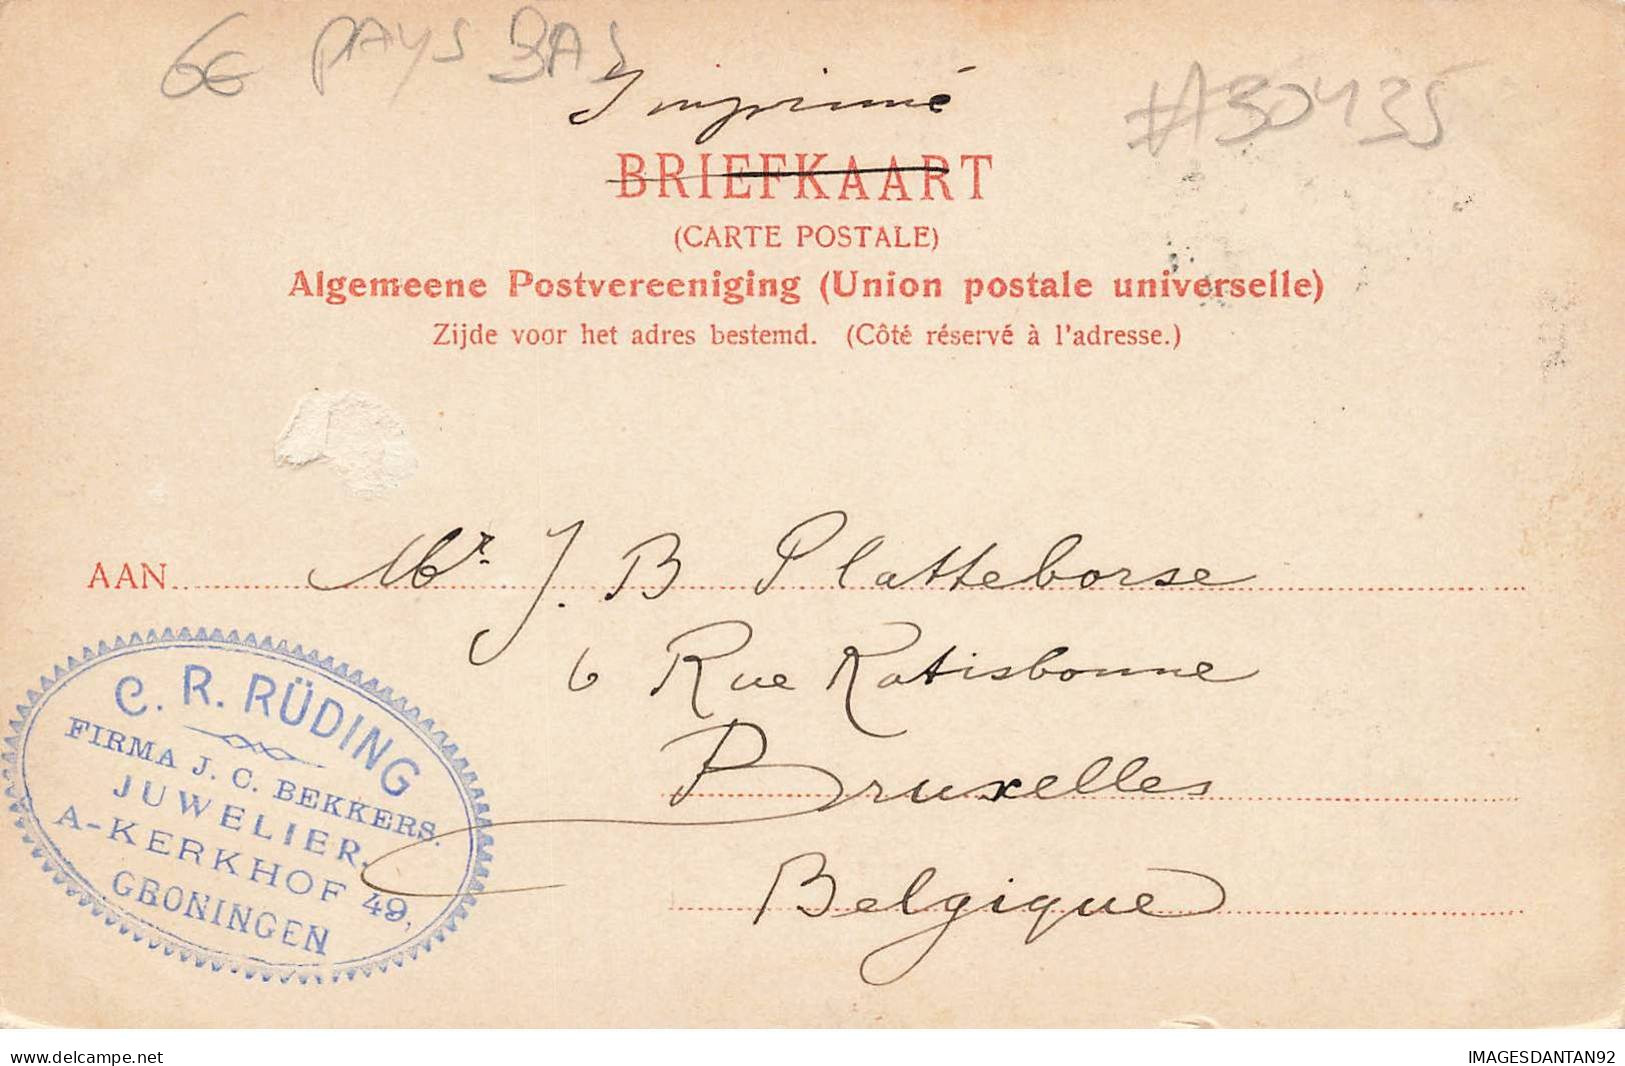 6€ PAYS BAS
#A30435
Imprimé
BRIEFKAART
(CARTE POSTALE)
Algemeene Postvereeniging (Union postale universelle)
Zijde voor het adres bestemd. (Côté réservé à l'adresse.)
AAN Mr. J. B Platteborse
6 Rue Ratisbonne
Bruxelles
Belgique
C. R. RÜDING
FIRMA J. C. BEKKERS.
JUWELIER,
A-KERKHOF 49,
GRONINGEN
www.delcampe.net
IMAGESDANTAN92